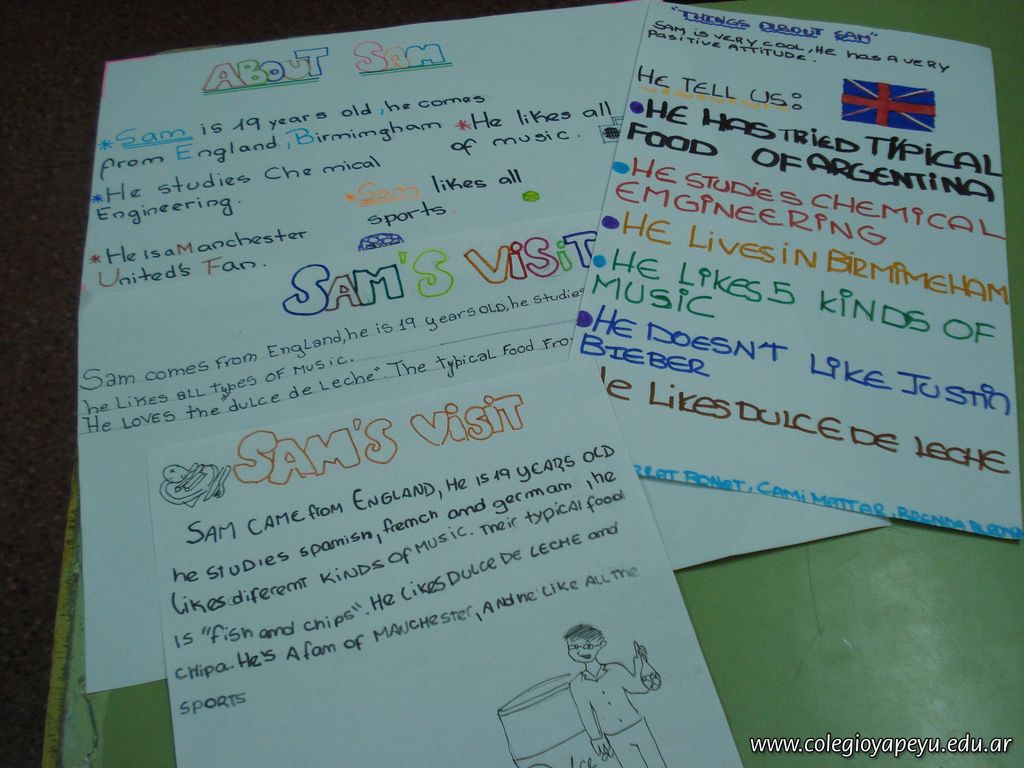 ABOUT SAM
*Sam is 19 years old, he comes
from England, Birmimgham
*He likes all
of music.
*He studies Chemical
Engineering.
*Sam likes all
sports
*He is a Manchester
United's Fan.
SAM'S VISIT
Sam comes from England, he is 19 years OLD, he studies
he likes all types of music.
He loves the "dulce de Leche". The typical Food Fro
SAM'S VISIT
SAM CAME from ENGLAND, He IS 19 YEARS OLD
he STUDIES spanish, french and german, he
likes diferent KINDS OF MUSIC. Their typical food
IS "fish and chips". He LIKES DULCE DE LECHE and
chipa. He'S A fam of MANCHESTER, And he LIKE ALL THE
SPORTS
"THINGS ABOUT SAM"
SAM IS VERY COOL, HE HAS A VERY
POSITIVE ATTITUDE.
HE TELL US:
•HE HAS TRIED TYPICAL
FOOD OF ARGENTINA
•HE STUDIES CHEMICAL
EMGINEERING
•HE LIVES IN BIRMIMEHAM
•HE LIKES 5 KINDS OF
MUSIC
•HE DOESN'T LIKE JUSTIN
BIEBER
He LIKES DULCE DE LECHE
BONET, CAMI MATTAR, BRENDA
www.colegioyapeyu.edu.ar